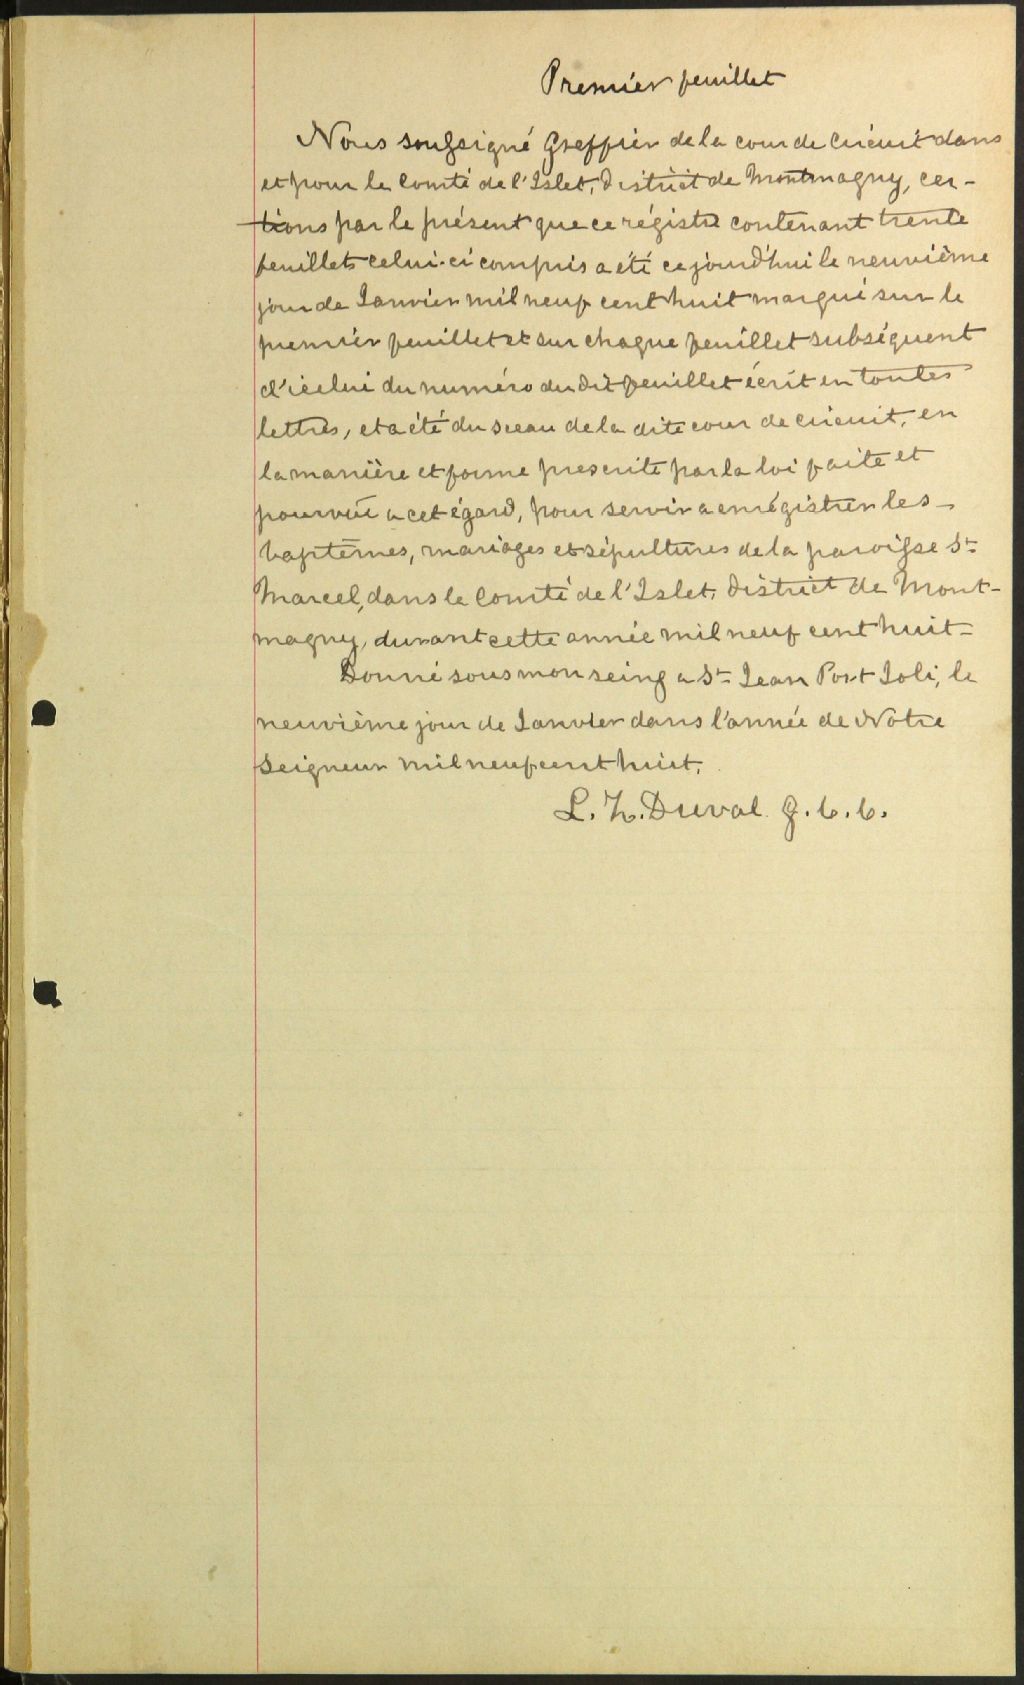 Premier feuillet
Nous soussigné Greffier de la cour de Circuit dans
et pour le Comté de l'Islet, District de Montmagny, cer-
tions par le présent que ce régistre contenant trente
feuillets celui-ci compris a été ce jourd'hui le neuvième
jour de Janvier mil neuf cent huit marqué sur le
premier feuillet et sur chaque feuillet subséquent
d'icelui du numéro du dit feuillet écrit en toutes
lettres, et a été du sceau de la dite cour de circuit, en
la manière et forme prescrite par la loi faite et
pourvue a cet égard, pour servir a enrégistrer les
baptêmes, mariages et sépultures de la paroisse St
Marcel, dans le Comté de l'Islet, District de Mont-
magny, durant cette année mil neuf cent huit-
Donné sous mon seing a St Jean Port Joli, le
neuvième jour de Janvier dans l'année de Notre
Seigneur mil neuf cent huit.
L. Z. Duval G.C.C.